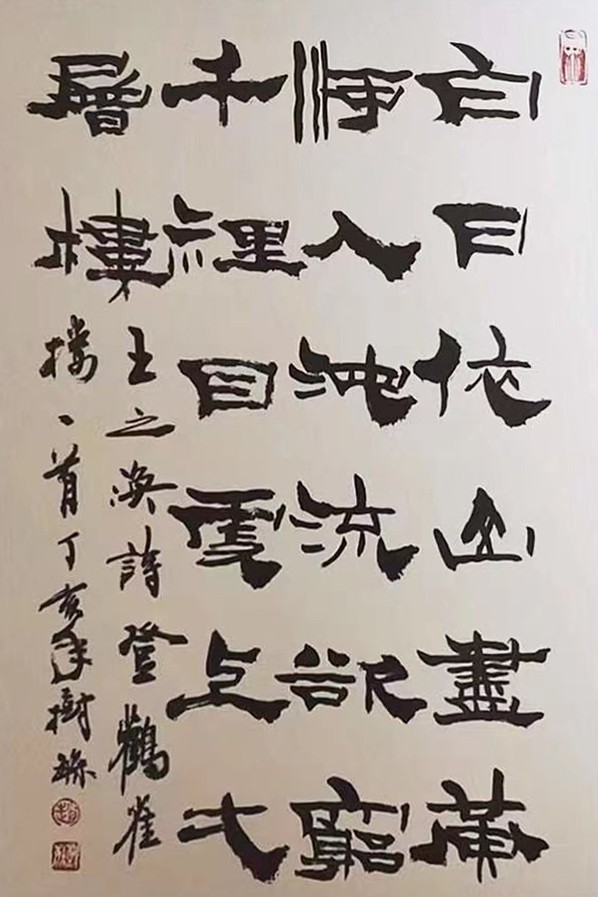 白日依山盡黄
河入海流欲窮
千里目更上弌
層樓
王之渙詩登鸛雀
樓一首丁亥年樹